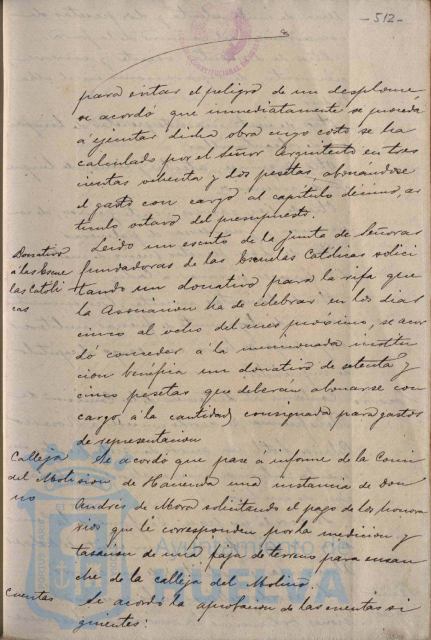 -512-
para evitar el peligro de un desplome,
se acordó que inmediatamente se proceda
á ejecutar dicha obra cuyo costo se ha
calculado por el Señor Arquitecto en tres
cientas ochenta y dos pesetas, abonándose
el gasto con cargo al capítulo décimo, ar
tículo octavo del presupuesto.
Donativo
á las Escue
las Católi
cas
Leido un escrito de la Junta de Señoras
fundadoras de las Escuelas Católicas solici
tando un donativo para la rifa que
la Asociacion ha de celebrar en los dias
cinco al ocho del mes próximo, se acor
dó conceder á la mencionada institu
cion benéfica un donativo de setenta y
cinco pesetas que deberán abonarse con
cargo á la cantidad consignada para gastos
de representacion
Calleja
del Moli
no
Se acordó que pase á informe de la Comi
sion de Hacienda una instancia de Don
Andrés de Mora solicitando el pago de los honora
rios que le corresponden por la medicion y
tasacion de una faja de terreno para ensan
che de la calleja del Molino.
Cuentas
Se acordó la aprobacion de las cuentas si
guientes:
Ayuntamiento de
HUELVA